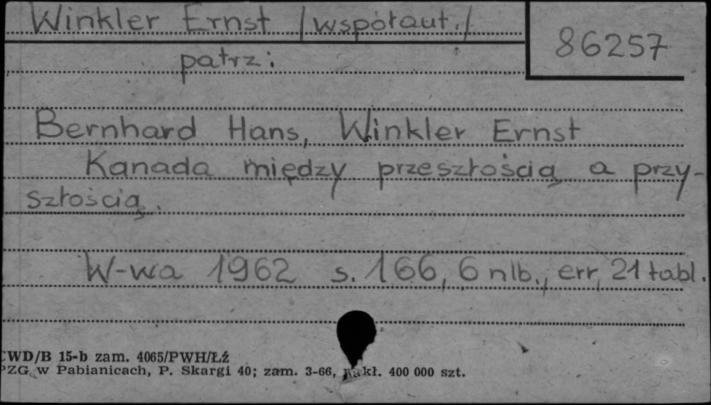 Winkler Ernst /współaut./
86257
patrz:
Bernhard Hans, Winkler Ernst
Kanada między przeszłością a przy-
szłością.
W-wa 1962 s. 166, 6 nlb., err, 21 tabl.
CWD/B 15-b zam. 4065/PWH/ŁŹ
PZG w Pabianicach, P. Skargi 40; zam. 3-66, nakł. 400 000 szt.